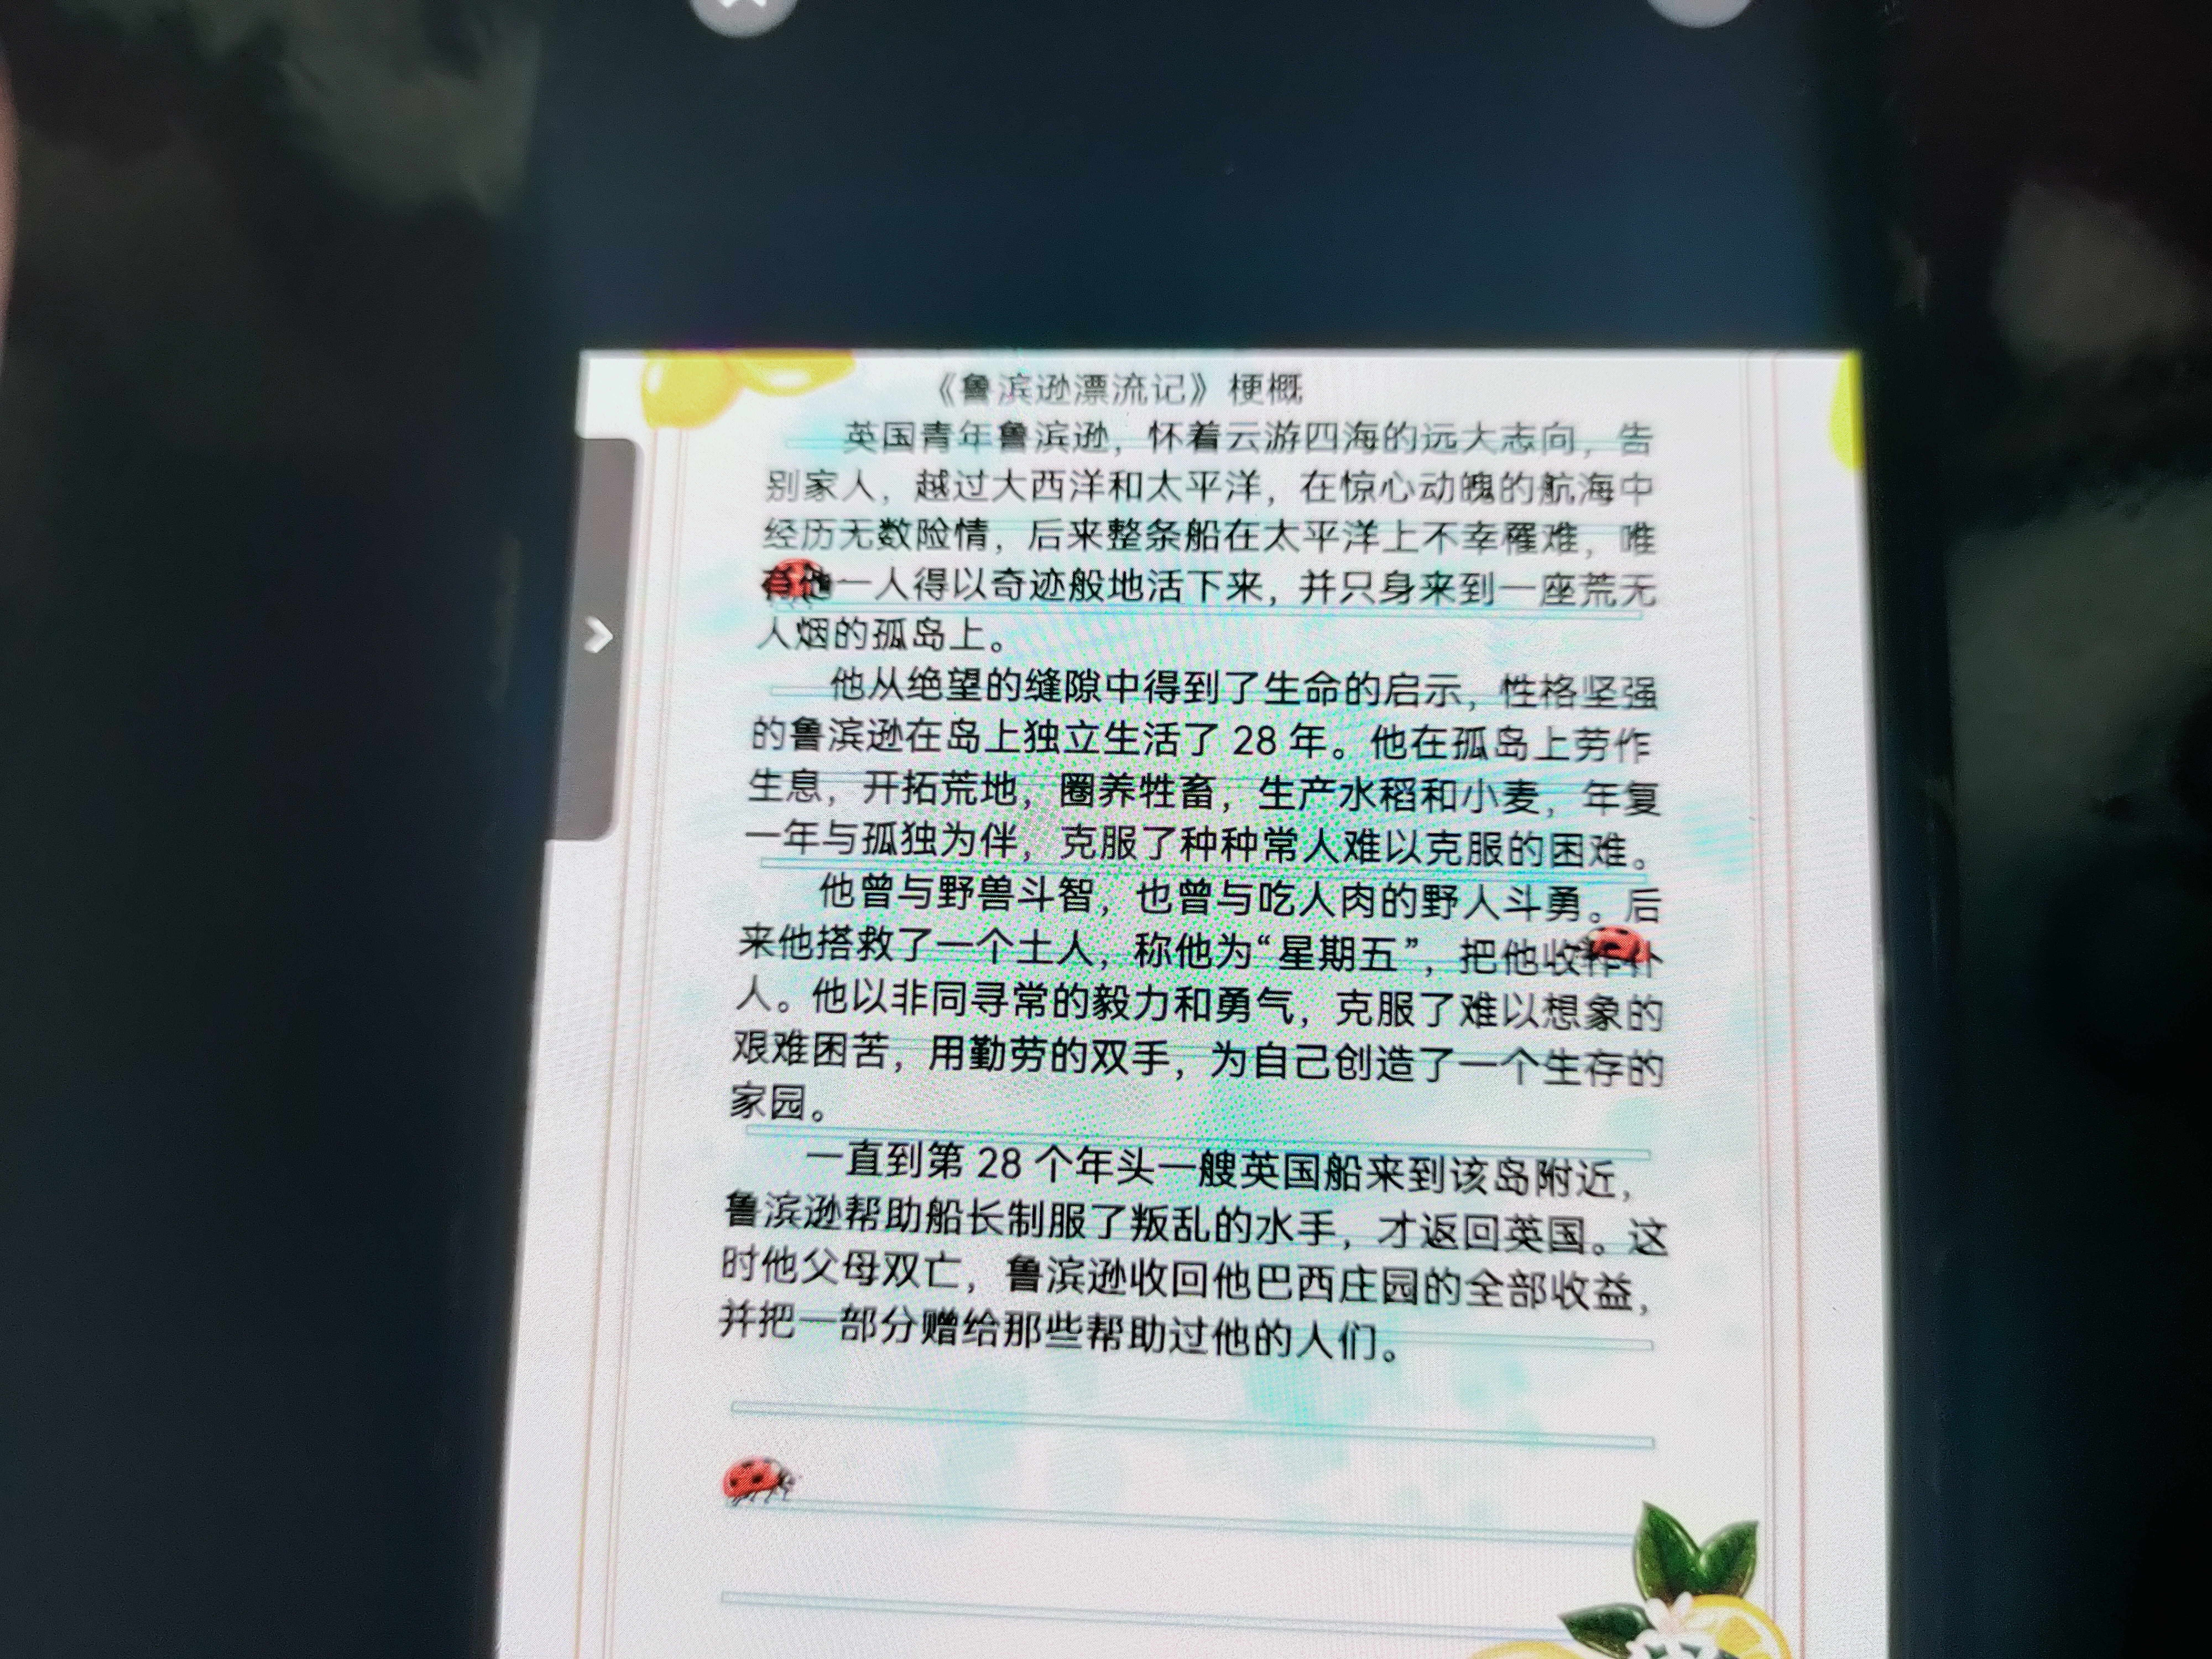 《鲁滨逊漂流记》梗概
英国青年鲁滨逊，怀着云游四海的远大志向，告
别家人，越过大西洋和太平洋，在惊心动魄的航海中
经历无数险情，后来整条船在太平洋上不幸罹难，唯
有他一人得以奇迹般地活下来，并只身来到一座荒无
人烟的孤岛上。
他从绝望的缝隙中得到了生命的启示，性格坚强
的鲁滨逊在岛上独立生活了 28 年。他在孤岛上劳作
生息，开拓荒地，圈养牲畜，生产水稻和小麦，年复
一年与孤独为伴，克服了种种常人难以克服的困难。
他曾与野兽斗智，也曾与吃人肉的野人斗勇。后
来他搭救了一个土人，称他为“星期五”，把他收作仆
人。他以非同寻常的毅力和勇气，克服了难以想象的
艰难困苦，用勤劳的双手，为自己创造了一个生存的
家园。
一直到第 28 个年头一艘英国船来到该岛附近，
鲁滨逊帮助船长制服了叛乱的水手，才返回英国。这
时他父母双亡，鲁滨逊收回他巴西庄园的全部收益，
并把一部分赠给那些帮助过他的人们。